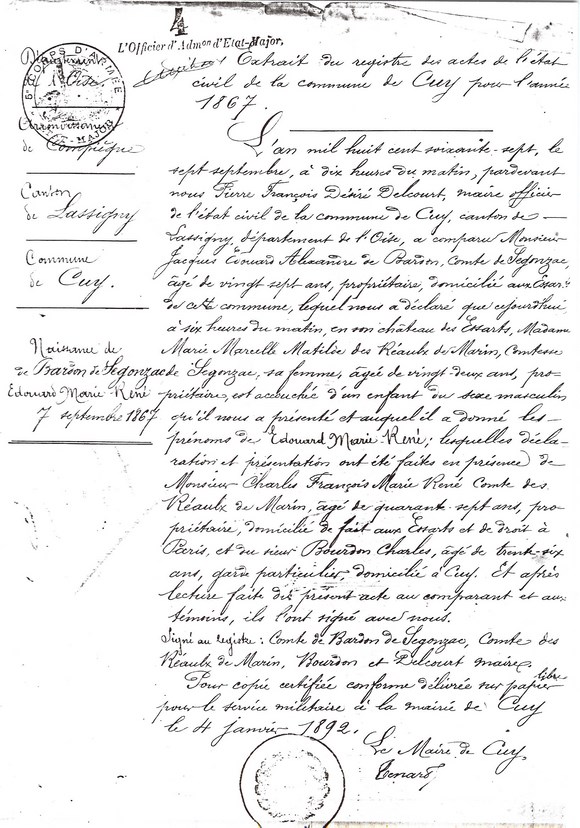 4
L'Officier d'Admon d'Etat-Major,
5e CORPS D'ARMÉE
ETAT-MAJOR
Extrait du registre des actes de l'état
civil de la commune de Cuy pour l'année
1867.
Département
Oise
Arrondissement
de Compiègne
Canton
de Lassigny
Commune
de Cuy.
Naissance de
de Bardon de Segonzac
Edouard Marie René
7 septembre 1867
L'an mil huit cent soixante-sept, le
sept septembre, à dix heures du matin, pardevant
nous Pierre François Désiré Delcourt, maire officier
de l'état civil de la commune de Cuy, canton de
Lassigny, département de l'Oise, a comparu Monsieur
Jacques Edouard Alexandre de Bardon, Comte de Segonzac,
âgé de vingt sept ans, propriétaire, domicilié aux Essarts
de cette commune, lequel nous a déclaré que cejourd'hui
à six heures du matin, en son château des Essarts, Madame
Marie Marcelle Matilde des Réaulx de Marin, Comtesse
de Segonzac, sa femme, âgée de vingt-deux ans, pro-
priétaire, est accouchée d'un enfant du sexe masculin
qu'il nous a présenté et auquel il a donné les
prénoms de Edouard Marie René; lesquelles décla-
ration et présentation ont été faites en présence de
Monsieur Charles François Marie René Comte des
Réaulx de Marin, âgé de quarante-sept ans, pro-
priétaire, domicilié de fait aux Essarts et de droit à
Paris, et du sieur Bourdon Charles, âgé de trente-six
ans, garde particulier, domicilié à Cuy. Et après
lecture faite du présent acte au comparant et aux
témoins, ils l'ont signé avec nous.
Signé au registre: Comte de Bardon de Segonzac, Comte des
Réaulx de Marin, Bourdon et Delcourt maire.
Pour copie certifiée conforme délivrée sur papier libre
pour le service militaire à la mairie de Cuy
le 4 janvier 1892.
Le Maire de Cuy,